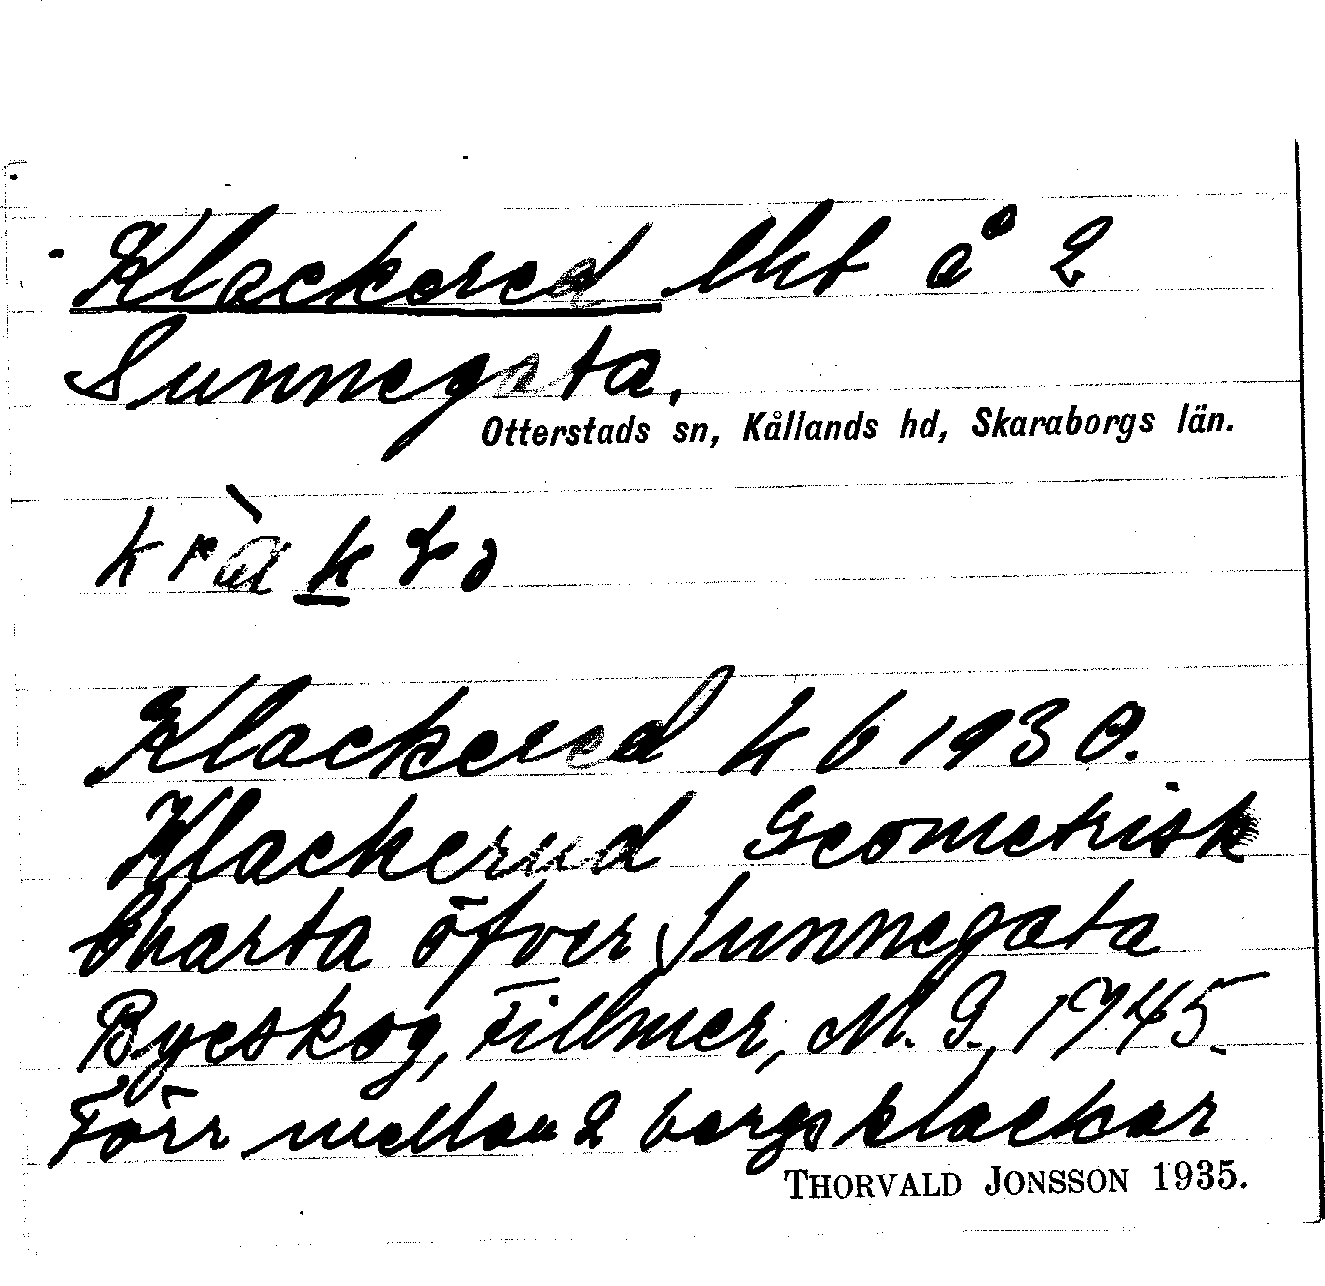 Klackered lht å 2
Sunnegata.
Otterstads sn, Kållands hd, Skaraborgs län.
Klackered kb 1930.
Klackerud Geometrisk
Charta öfver Sunnegata
Byeskog, Fillmer, M. G., 1745.
Förr mellan 2 bergsklackar
THORVALD JONSSON 1935.